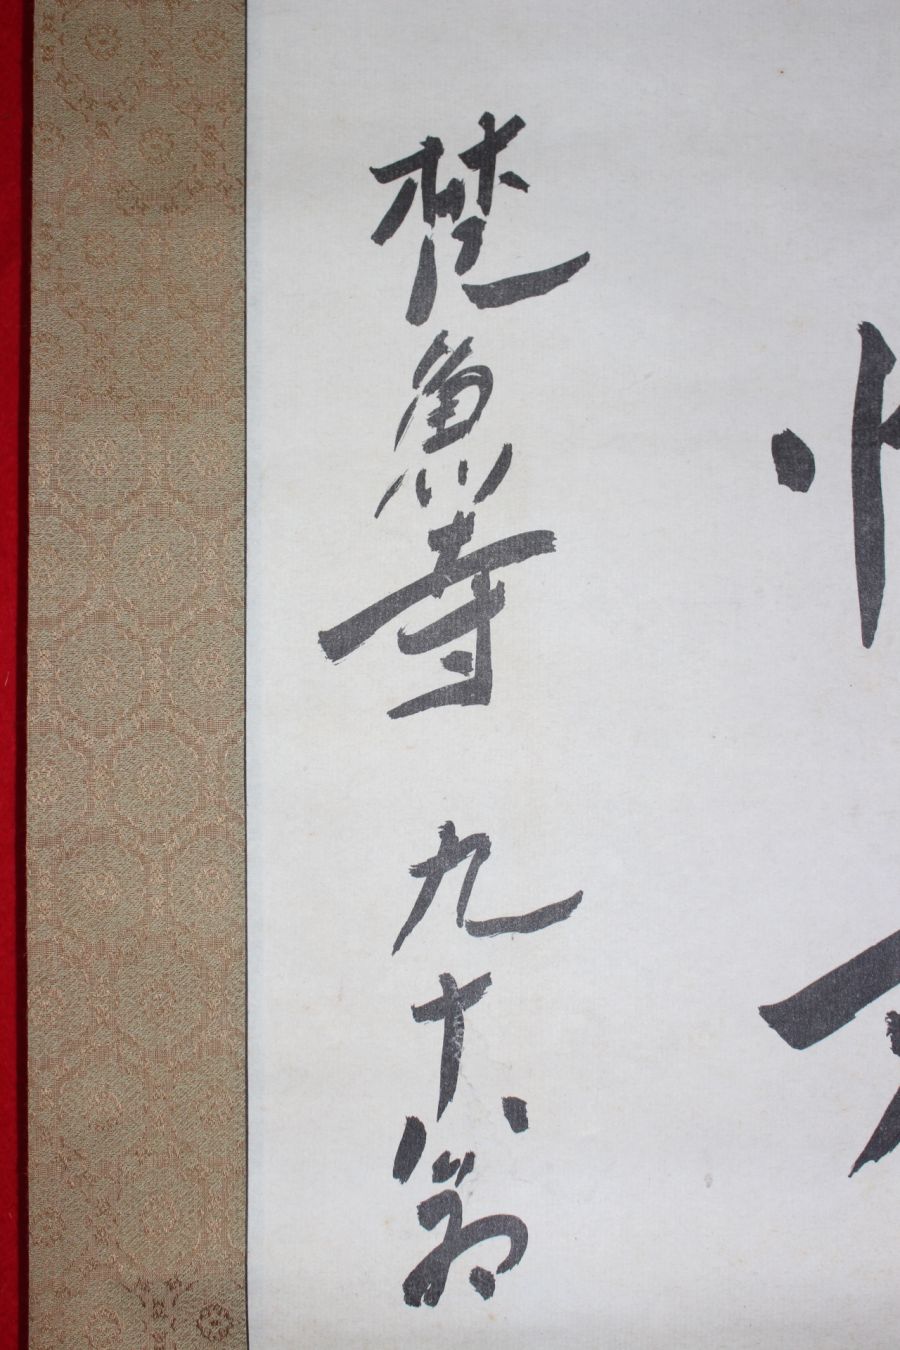 梵魚寺 九十八翁